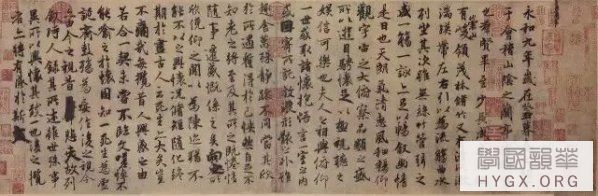 永和九年歲在癸丑
于會稽山陰之蘭亭
也羣賢畢至少長咸
有崇山峻領茂林脩竹又
湍暎帶左右引以為流觴曲水
列坐其次雖無絲竹管弦之
盛一觴一詠亦足以暢敘幽情
是日也天朗氣清惠風和暢仰
觀宇宙之大俯察品類之盛
所以遊目騁懷足以極視聽之
娛信可樂也夫人之相與俯仰
一世或取諸懷抱悟言一室之內
或因寄所託放浪形骸之外雖
趣舍萬殊靜躁不同當其欣
於所遇暫得於己怏然自足不
知老之將至及其所之既惓情
隨事遷感慨係之矣向之所
欣俛仰之閒以為陳迹猶不
能不以之興懷況脩短隨化終
期於盡古人云死生亦大矣豈
不痛哉每攬昔人興感之由
若合一契未嘗不臨文嗟悼不
能喻之於懷固知一死生為虛
誕齊彭殤為妄作後之視今
亦由今之視昔悲夫故列
敘時人錄其所述雖世殊事
異所以興懷其致一也後之攬
者亦將有感於斯文
HYGX.ORG